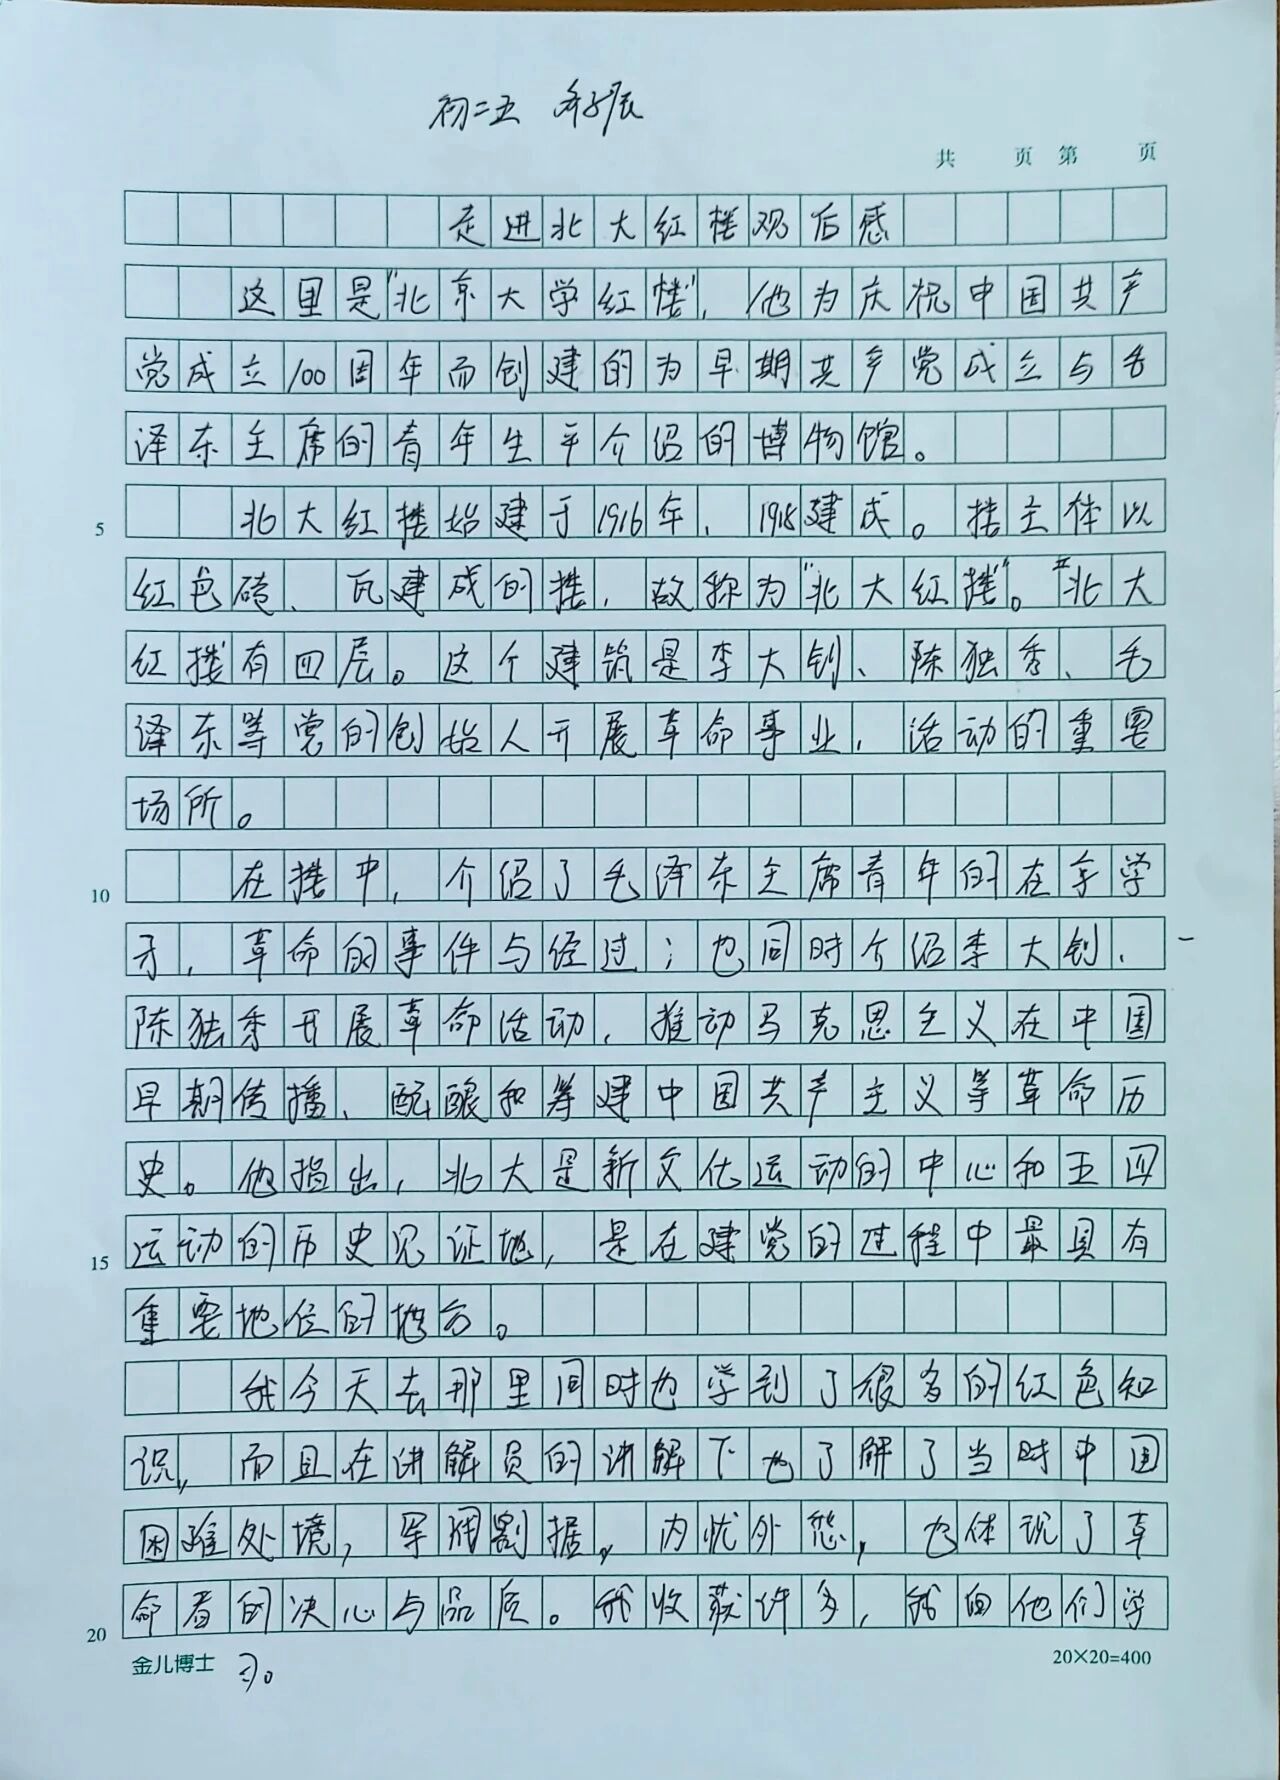 初二五
共 页 第 页
走进北大红楼观后感
这里是"北京大学红楼"，他为庆祝中国共产
党成立100周年而创建的为早期共产党成立与毛
泽东主席的青年生平介绍的博物馆。
5 北大红楼始建于1916年，1918建成。楼主体以
红色砖、瓦建成的楼，故称为"北大红楼"。"北大
红楼"有四层。这个建筑是李大钊、陈独秀、毛
泽东等党的创始人开展革命事业，活动的重要
场所。
10 在楼中，介绍了毛泽东主席青年的在京学
习，革命的事件与经过；也同时介绍李大钊、
陈独秀开展革命活动，推动马克思主义在中国
早期传播、酝酿和筹建中国共产主义等革命历
史。他指出，北大是新文化运动的中心和五四
15 运动的历史见证地，是在建党的过程中最具有
重要地位的地方。
我今天去那里同时也学到了很多的红色知
识，而且在讲解员的讲解下也了解了当时中国
困难处境，军阀割据，内忧外患，也体现了革
20 命者的决心与品质。我收获许多，我向他们学
金儿博士 习。 20×20=400